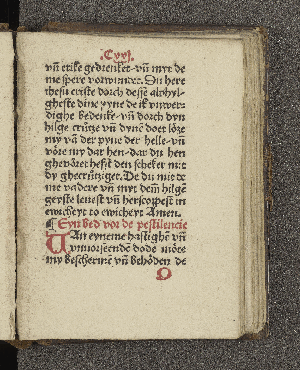 .Cxvj.
vn̄ etike gedrenket· vn̄ myt de
me spere vorwundet. Du here
ihesu criste dorch desse alhyl-
gheste dine pyne de ik vnwer-
dighe bedenke· vn̄ dorch dyn
hilge crütze vn̄ dynē doet löze
my vā der pyne der helle· vn̄
vöre my dar hen· dar du hen
ghevöret hefst den scheker mit
dy ghecrütziget. De du mit de
me vadere vn̄ myt dem hilgē
geyste leuest vn̄ herscopest in
ewicheyt to ewicheyt Amen.
¶ Eyn bed vor de pestilencie
Uan eyneme hastighē vn̄
vnuorseende dode möte
my beschermē vn̄ behöden de
O